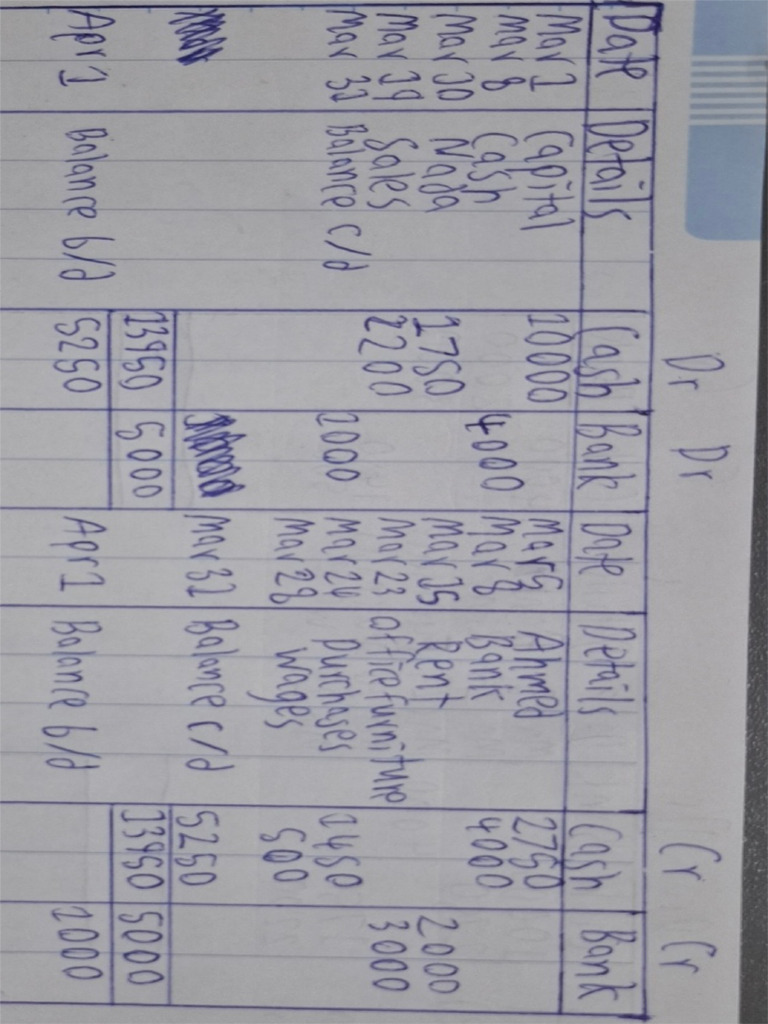 Dr Dr Cr Cr
Date Details Cash Bank Date Details Cash Bank
Mar 1 Capital 10000 Mar 5 Ahmed 2750
Mar 8 Cash 4000 Mar 8 Bank 4000
Mar 10 Nada 1750 Mar 15 Rent 2000
Mar 19 Sales 2200 Mar 23 office furniture 3000
Mar 31 Balance c/d 1000 Mar 24 purchases 1450
Mar 28 wages 500
Mar 31 Balance c/d 5250
13950 5000 13950 5000
Apr 1 Balance b/d 5250 Apr 1 Balance b/d 1000